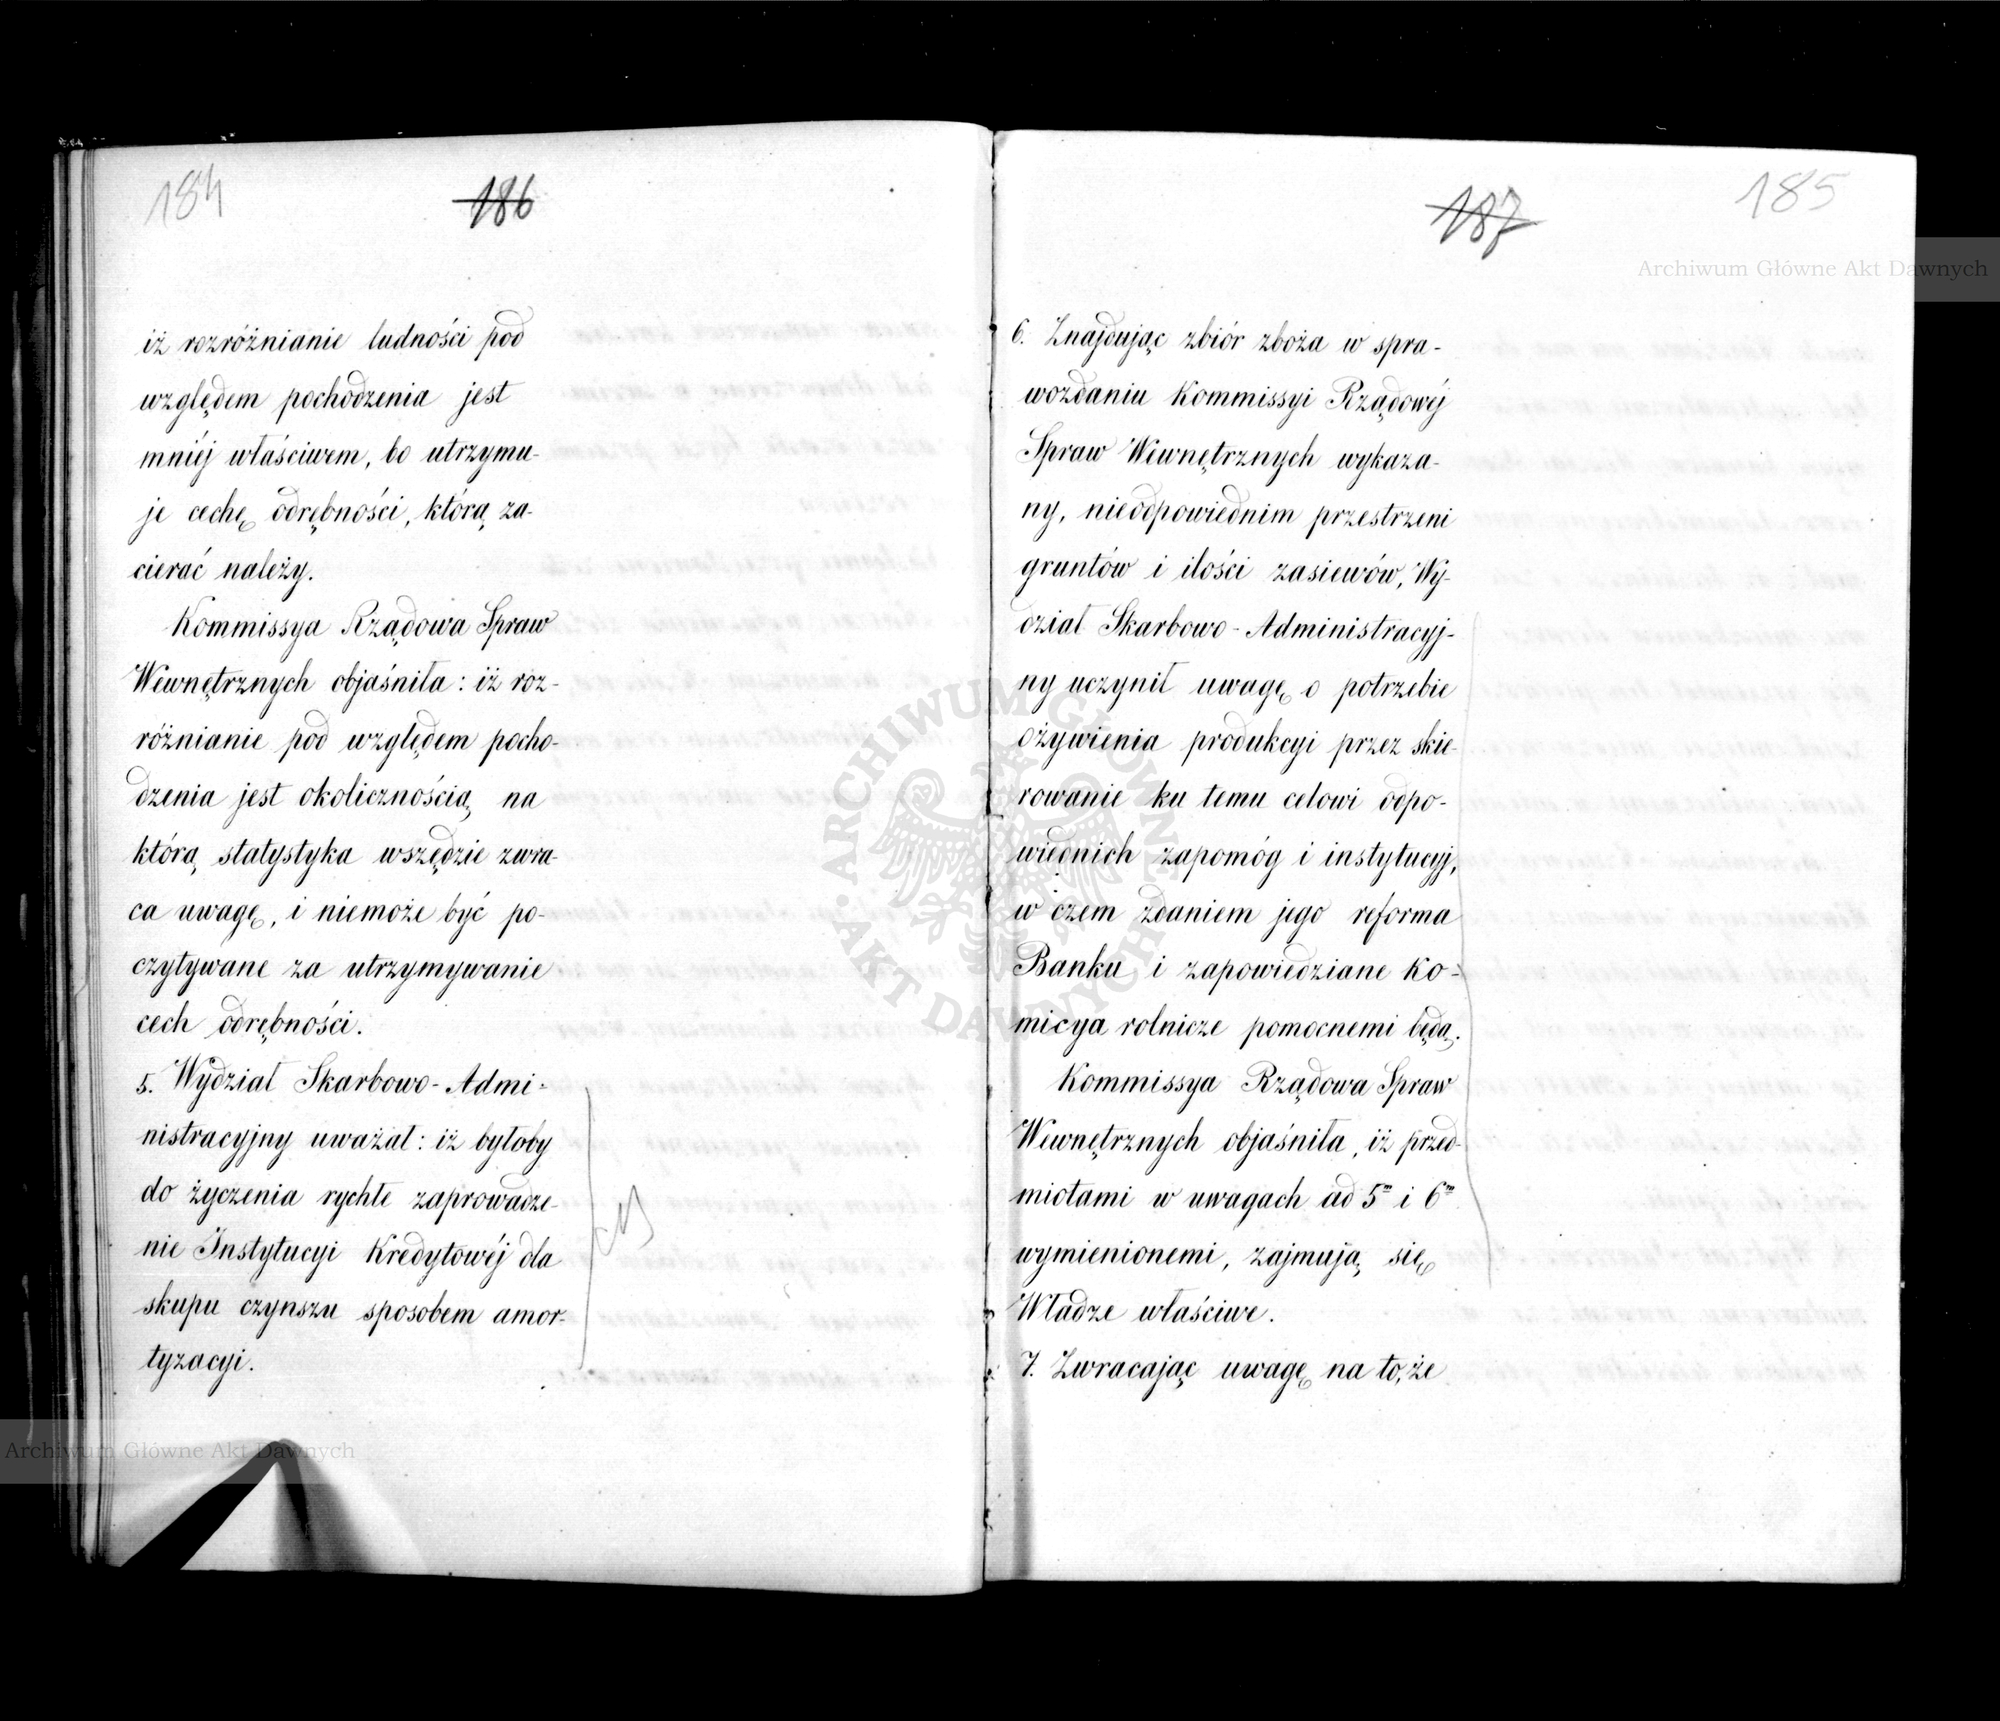 184
186
iż rozróżnianie ludności pod
względem pochodzenia jest
mniéj właściwem, bo utrzymu-
je cechę odrębności, którą za-
cierać należy.
Kommissya Rządowa Spraw
Wewnętrznych objaśniła: iż roz-
różnianie pod względem pocho-
dzenia jest okolicznością, na
którą statystyka wszędzie zwra-
ca uwagę, i niemoże być po-
czytywane za utrzymywanie
cech odrębności.
5. Wydział Skarbowo-Admi-
nistracyjny uważał: iż byłoby
do życzenia rychłe zaprowadze-
nie Instytucyi Kredytowéj dla
skupu czynszu sposobem amor-
tyzacyi.
187
185
6. Znajdując zbiór zboża w spra-
wozdaniu Kommissyi Rządowéj
Spraw Wewnętrznych wykaza-
ny, nieodpowiednim przestrzeni
gruntów i ilości zasiewów, Wy-
dział Skarbowo-Administracyj-
ny uczynił uwagę o potrzebie
ożywienia produkcyi przez skie-
rowanie ku temu celowi odpo-
wiednich zapomóg i instytucyj,
w czem zdaniem jego reforma
Banku i zapowiedziane Ko-
micya rolnicze pomocnemi będą.
Kommissya Rządowa Spraw
Wewnętrznych objaśniła, iż przed-
miotami w uwagach ad 5m i 6m
wymienionemi, zajmują się
Władze właściwe.
7. Zwracając uwagę na to, że
Archiwum Główne Akt Dawnych
Archiwum Główne Akt Dawnych
ARCHIWUM GŁÓWNE
AKT DAWNYCH